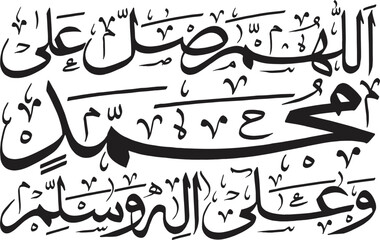 اَللّٰهُمَّ صَلِّ عَلٰى
مُحَمَّدٍ
وَعَلٰى اٰلِهٖ وَسَلِّمْ